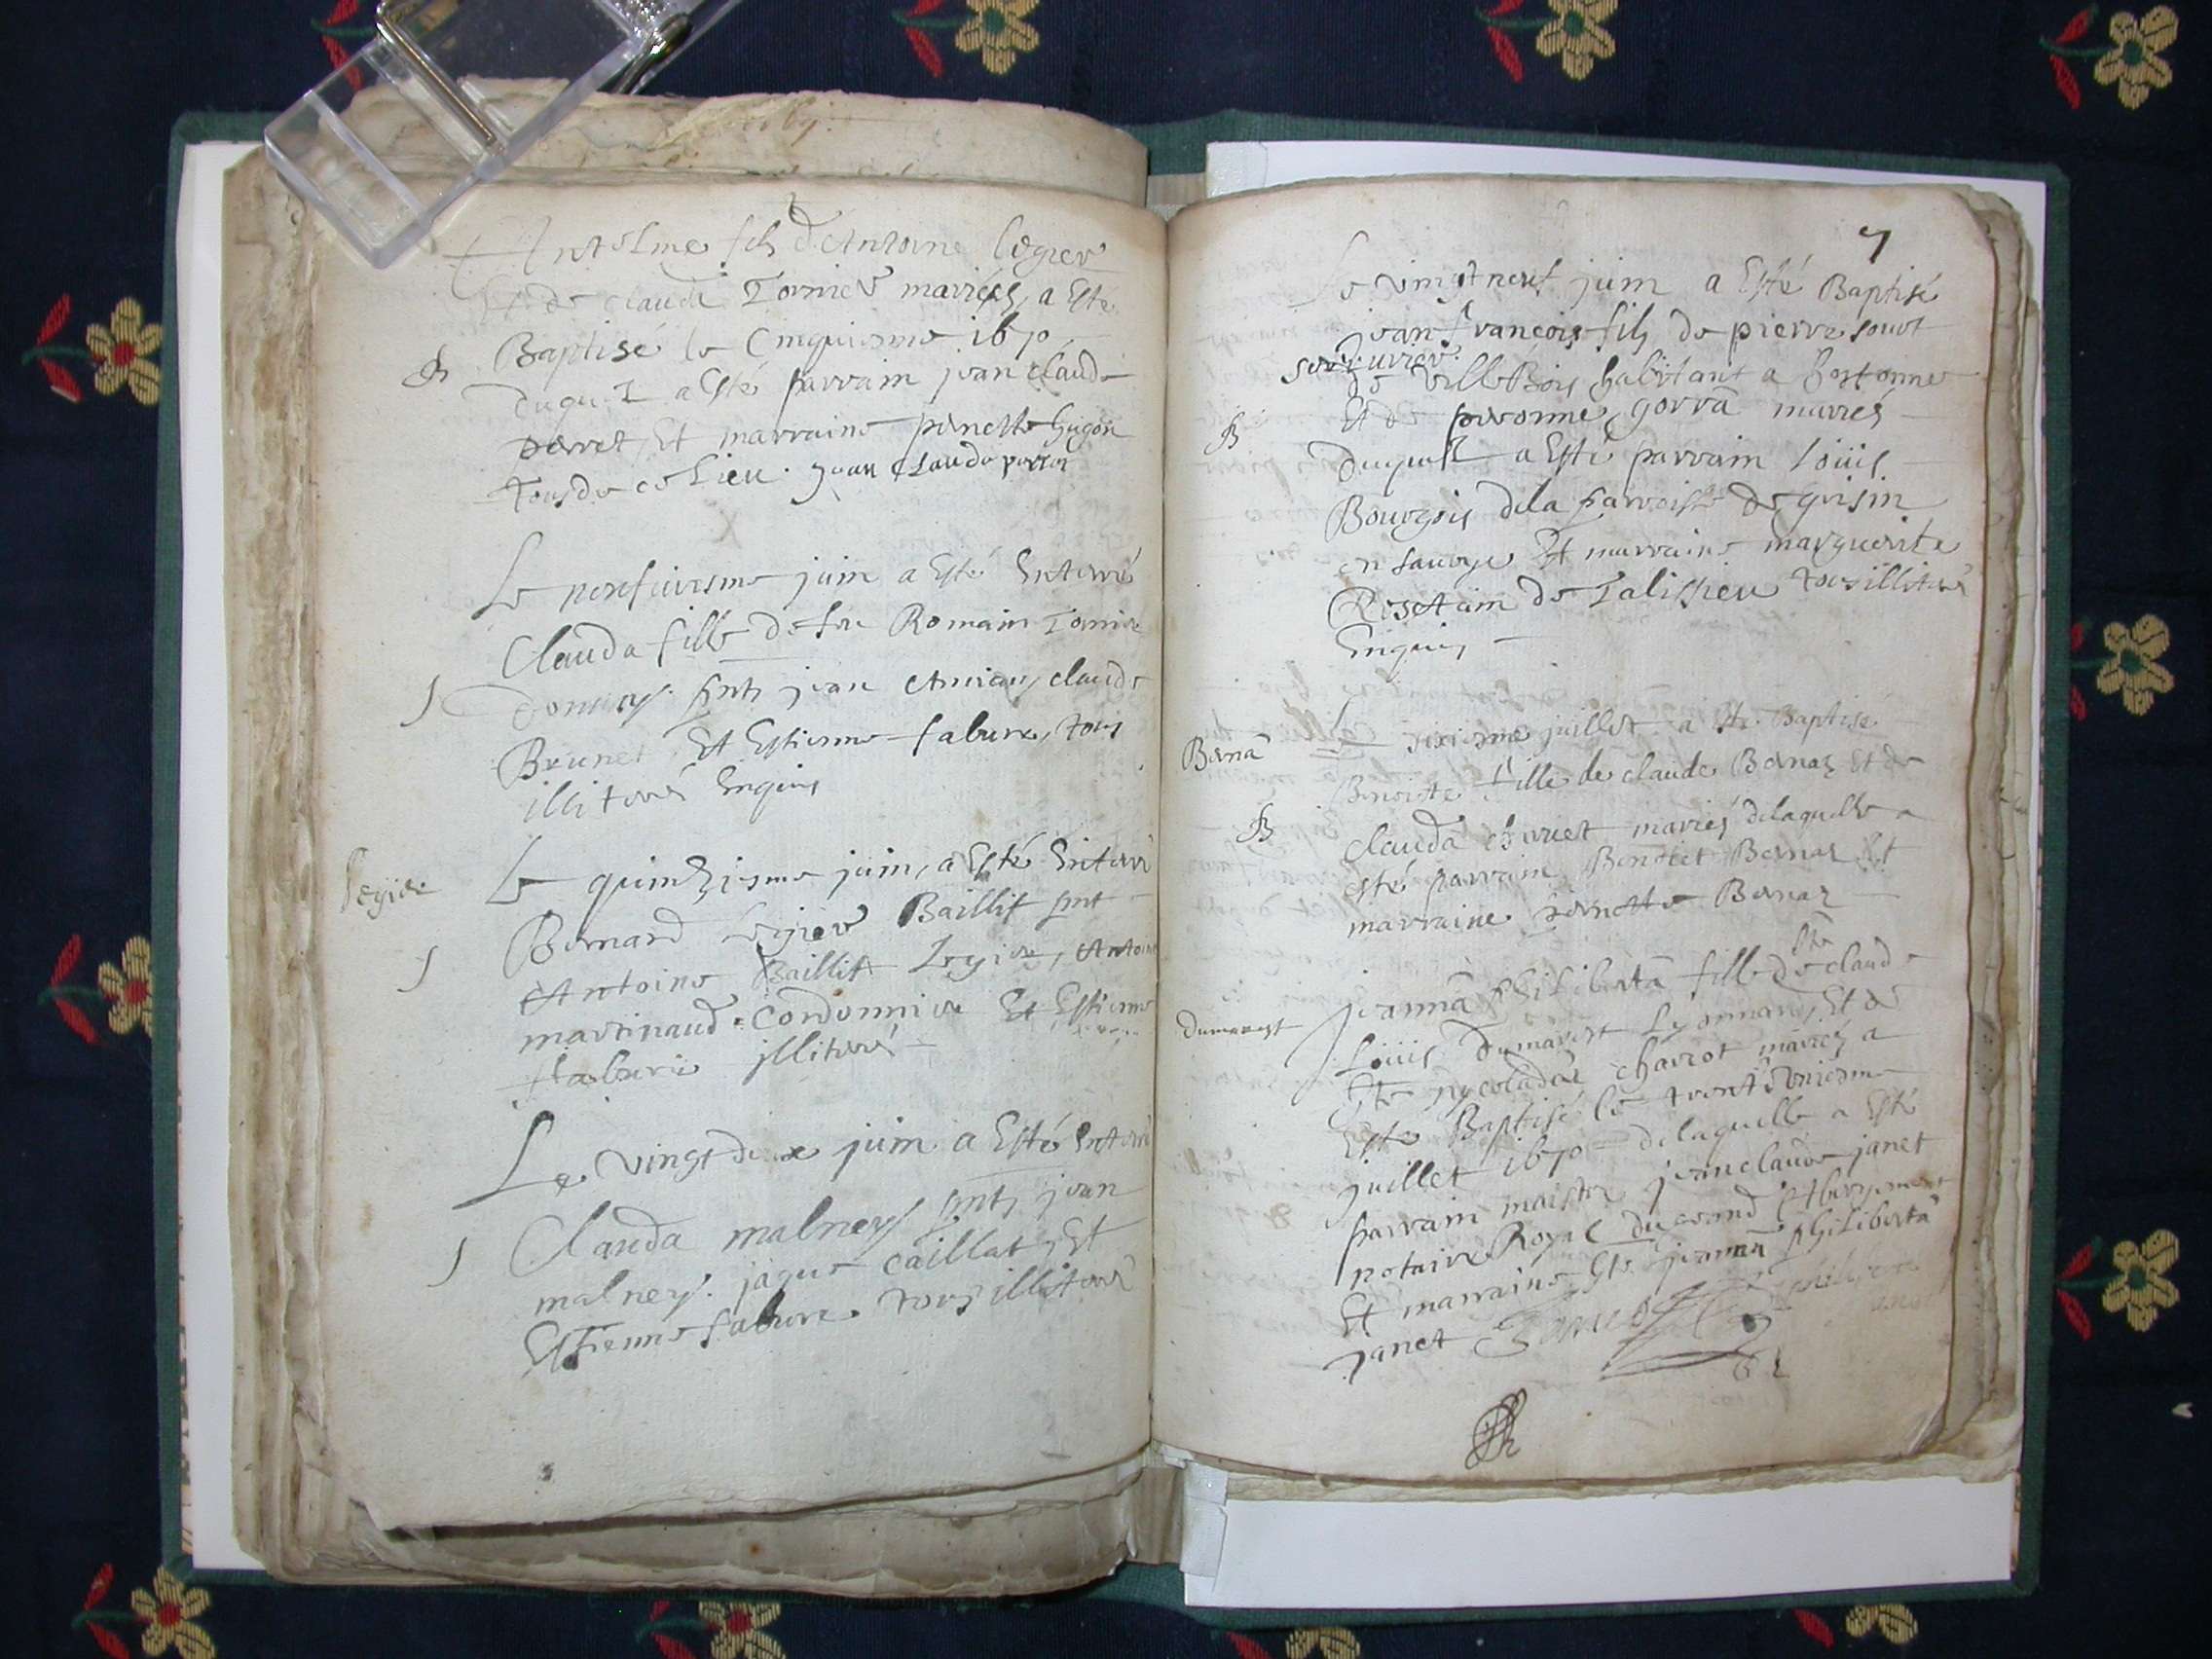 Antelme fils d'Antoine legier
Et de clauda Tornier mariés, a Esté
B Baptisé le Cinquiesme 1670
duquel a Esté parrain jean claude
perret Et marraine pernette hugon
Tous de ce Lieu. Jean Claude perret
Le neufviesme juin a Esté Enterré
Clauda fille de feu Romain Tornier
S donney. pnts jean Amieu, claude
Brunet Et Estienne fabure, tous
illiterés Enquis
legier Le quinziesme juin, a Esté Enterré
Bernard legier Baillif pnt
S Antoine Baillif Legier, Antoine
martinaud Cordonnier Et Estienne
faburc illiterés
Le vingt deux juin a Esté Enterré
Clauda malney pnts jean
S malney. jaque Caillat, Et
Estienne fabure tous illiterés
7
Le vingt neuf juin a Esté Baptisé
jean François fils de pierre
de VilleBois habitant a
Et de peronne gorra mariés
B duquel a Esté parrain Loüis
Bourgois dela parroisse de
en Savoye Et marraine marguerite
de Talissieu tous illiterés
Enquis
Berna Le sixiesme juillet a Esté Baptisé
Benoiste fille de claude Bernaz Et de
B clauda mariés delaquelle a
esté parrain Benoict Bernaz Et
marraine pernette Bernaz
jeanna philiberta fille de Sr claude
dumarest Loüis Dumarest Lyonnais, Et de
charcot mariés a
Esté Baptisé le trente Uniesme
juillet 1670 delaquelle a Esté
parrain maistre jean claude janet
notaire Royal du grand Abergement
Et marraine jeanna philiberta
janet